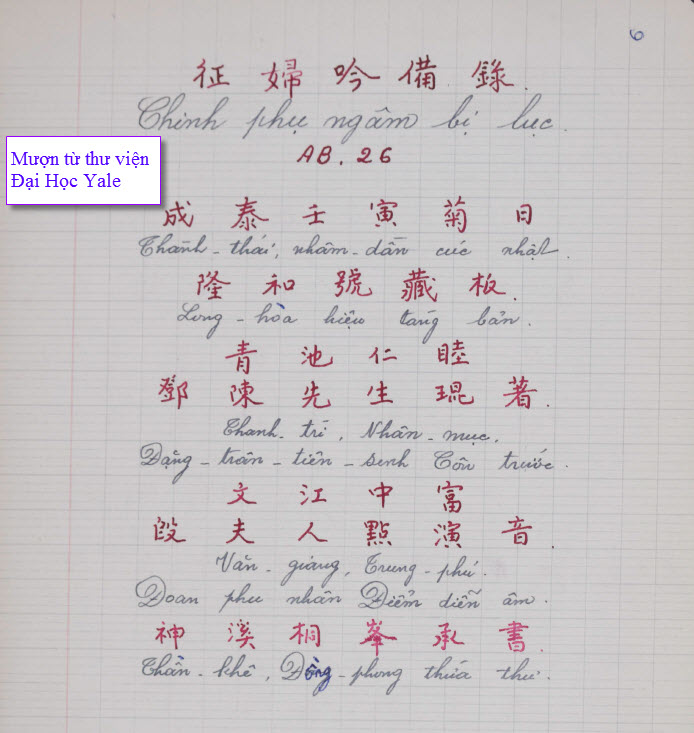 6
征婦吟備錄.
Chinh phụ ngâm bị lục.
AB.26
Mượn từ thư viện
Đại Học Yale
成泰壬寅菊日
Thành-thái, nhâm-dần cúc nhật.
隆和號藏板.
Long-hòa hiệu tàng bản.
青池仁睦
鄧陳先生琨著.
Thanh-trì, Nhân-mục.
Đặng-trần-tiên-sinh Côn trước.
文江中富
段夫人點演音.
Văn-giang, Trung-phú.
Đoan phu nhân Điểm diễn âm.
神溪桐峯承書.
Thần-khê, Đồng-phong thừa thư.